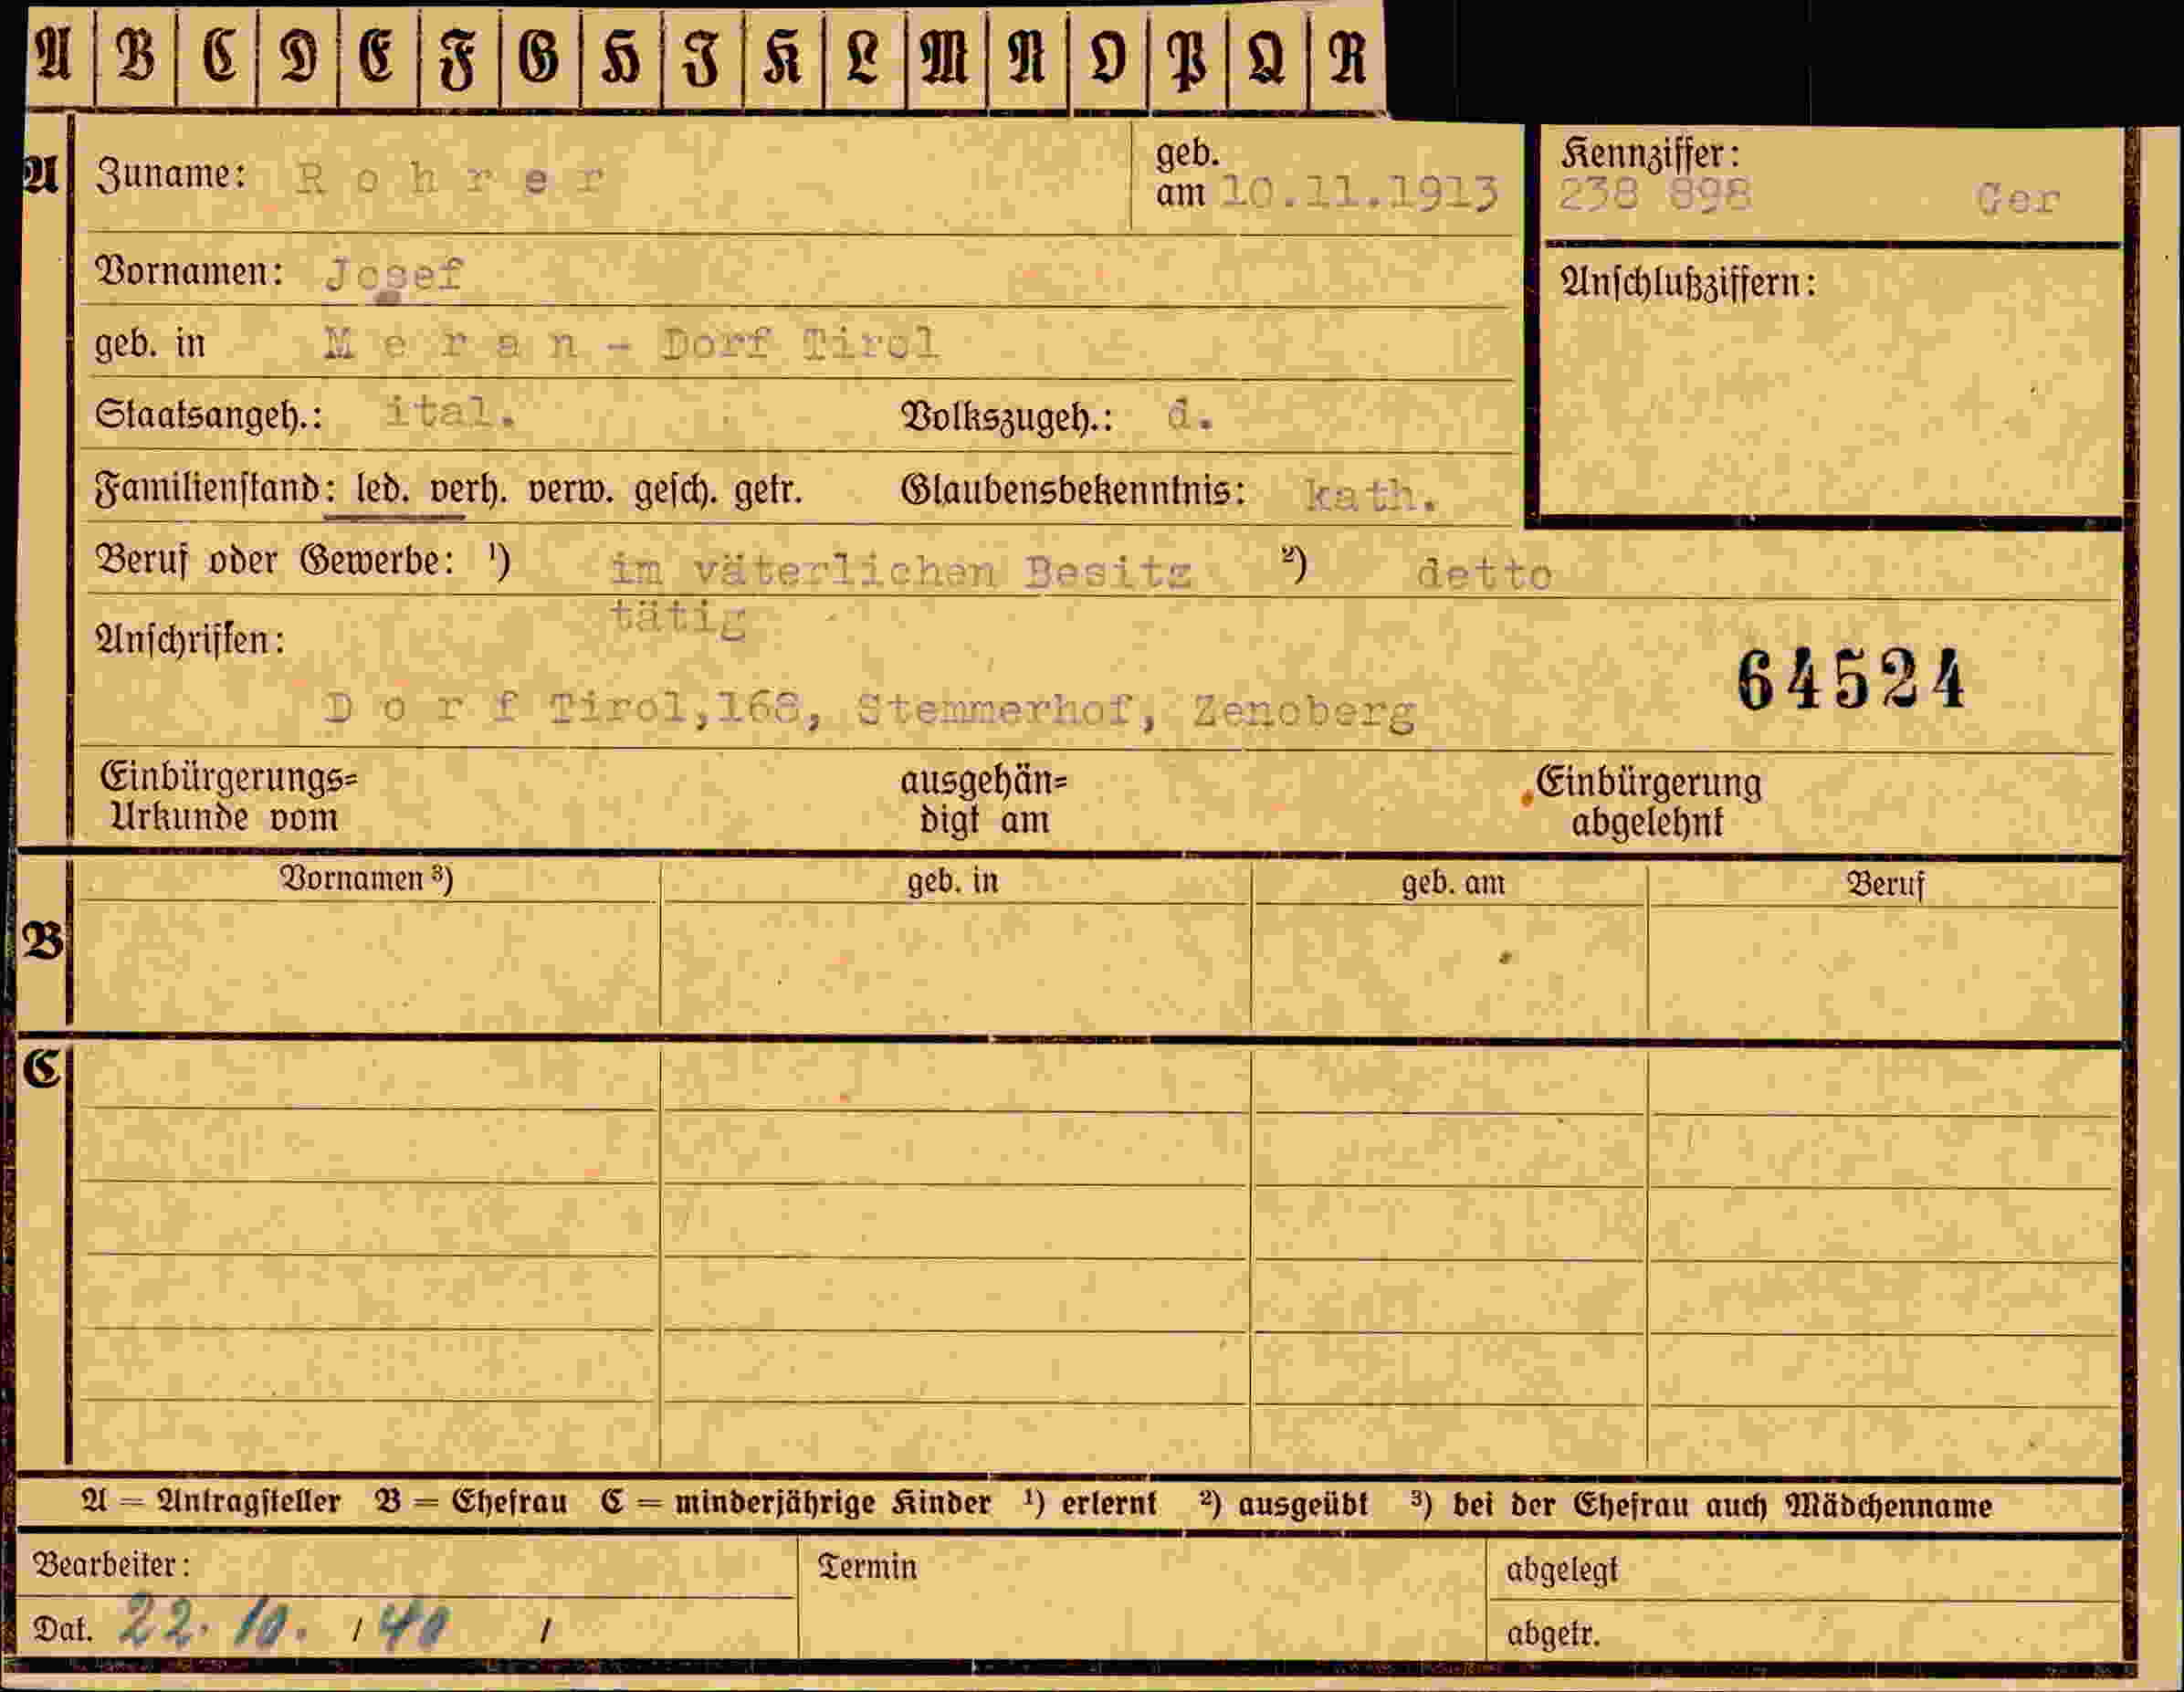 A B C D E F G H I K L M N O P Q R
A Zuname: R o h r e r geb. am 10.11.1913
Kennziffer:
238 898 Ger
Vornamen: Josef
Anschlußziffern:
geb. in M e r a n - Dorf Tirol
Staatsangeh.: ital. Volkszugeh.: d.
Familienstand: led. verh. verw. gesch. getr. Glaubensbekenntnis: kath.
Beruf oder Gewerbe: ¹) im väterlichen Besitz ²) detto
tätig
Anschriften:
64524
D o r f Tirol,168, Stemmerhof, Zenoberg
Einbürgerungs= ausgehän= Einbürgerung
Urkunde vom digt am abgelehnt
Vornamen ³) geb. in geb. am Beruf
B
C
A = Antragsteller B = Ehefrau C = minderjährige Kinder ¹) erlernt ²) ausgeübt ³) bei der Ehefrau auch Mädchenname
Bearbeiter: Termin abgelegt
Dat. 22. 10. / 40 / abgetr.